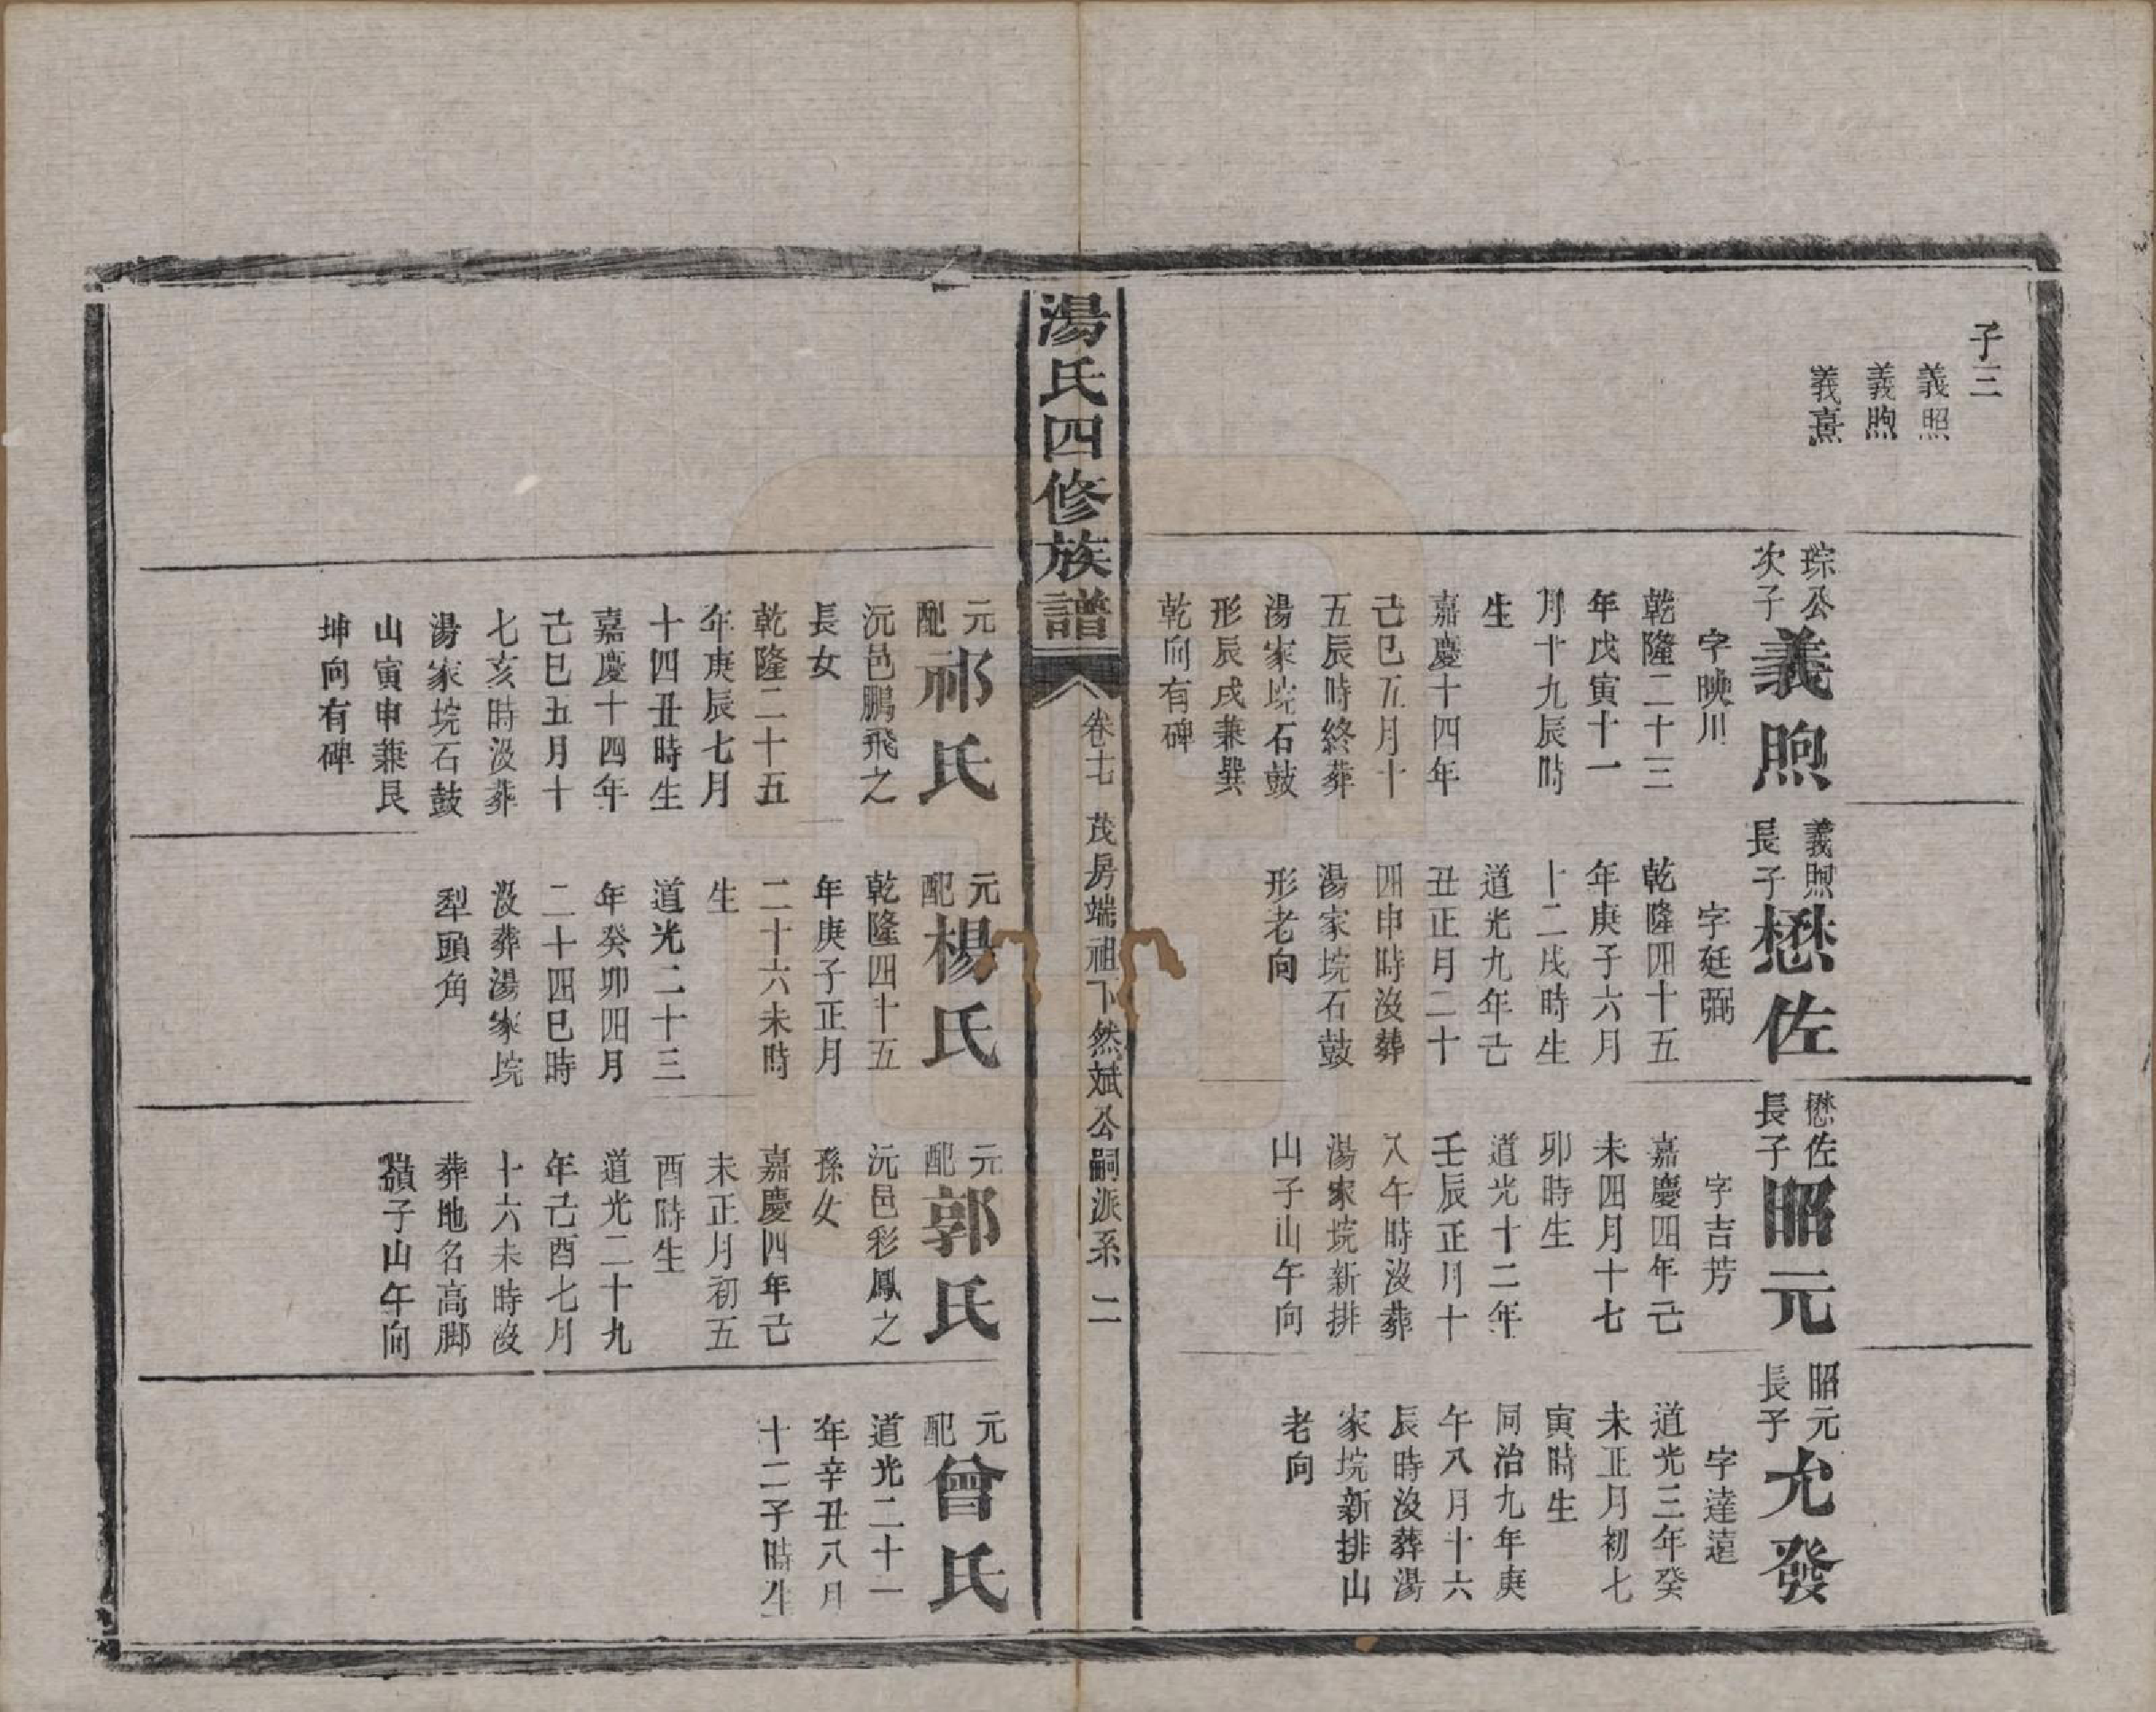 子三
義照
義煦
義熹
琮公
次子
義煦
字映川
乾隆二十三
年戊寅十一
月十九辰時
生
嘉慶十四年
己巳五月十
五辰時終葬
湯家垸石鼓
形辰戌兼巽
乾向有碑
義煦
長子
懋佐
字廷弼
乾隆四十五
年庚子六月
十二戌時生
道光九年己
丑正月二十
四申時沒葬
湯家垸石鼓
形老向
懋佐
長子
昭元
字吉芳
嘉慶四年己
未四月十七
卯時生
道光十二年
壬辰正月十
八午時沒葬
湯家垸新排
山子山午向
昭元
長子
允發
字達遠
道光三年癸
未正月初七
寅時生
同治九年庚
午八月十六
辰時沒葬湯
家垸新排山
老向
湯氏四修族譜
卷七 茂房端祖下然斌公嗣派系 二
元
配
祁氏
沅邑鵬飛之
長女
乾隆二十五
年庚辰七月
十四丑時生
嘉慶十四年
己巳五月十
七亥時沒葬
湯家垸石鼓
山寅申兼艮
坤向有碑
元
配
楊氏
乾隆四十五
年庚子正月
二十六未時
生
道光二十三
年癸卯四月
二十四巳時
沒葬湯家垸
犁頭角
元
配
郭氏
沅邑彩鳳之
孫女
嘉慶四年己
未正月初五
酉時生
道光二十九
年己酉七月
十六未時沒
葬地名高腳
嶺子山午向
元
配
曾氏
道光二十一
年辛丑八月
十二子時生